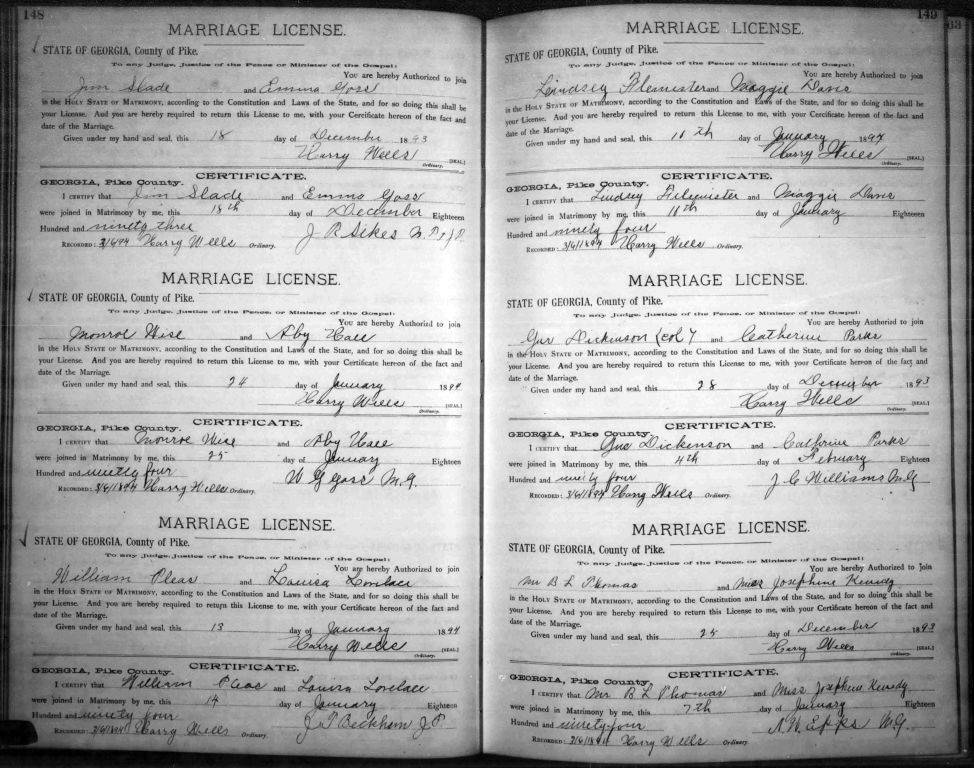 148
MARRIAGE LICENSE.
STATE OF GEORGIA, County of Pike.
To any Judge, Justice of the Peace, or Minister of the Gospel:
You are hereby Authorized to join
Jim Slade and Emma Goss
in the HOLY STATE OF MATRIMONY, according to the Constitution and Laws of the State, and for so doing this shall be
your License. And you are hereby required to return this License to me, with your Certificate hereon of the fact and
date of the Marriage.
Given under my hand and seal, this 18 day of December 1893
Harry Wells [SEAL.]
Ordinary.
CERTIFICATE.
GEORGIA, Pike County.
I CERTIFY that Jim Slade and Emma Goss
were joined in Matrimony by me, this 18th day of December Eighteen
Hundred and ninety three
J R Sikes N.P. & J.P.
RECORDED: 3/6/94 Harry Wells Ordinary.
MARRIAGE LICENSE.
STATE OF GEORGIA, County of Pike.
To any Judge, Justice of the Peace, or Minister of the Gospel:
You are hereby Authorized to join
Monroe Wise and Aby Hall
in the HOLY STATE OF MATRIMONY, according to the Constitution and Laws of the State, and for so doing this shall be
your License. And you are hereby required to return this License to me, with your Certificate hereon of the fact and
date of the Marriage.
Given under my hand and seal, this 24 day of January 1894
Harry Wells [SEAL.]
Ordinary.
CERTIFICATE.
GEORGIA, Pike County.
I CERTIFY that Monroe Wise and Aby Hall
were joined in Matrimony by me, this 25 day of January Eighteen
Hundred and ninety four
W G Goss M.G.
RECORDED: 3/6/1894 Harry Wells Ordinary.
MARRIAGE LICENSE.
STATE OF GEORGIA, County of Pike.
To any Judge, Justice of the Peace, or Minister of the Gospel:
You are hereby Authorized to join
William Pleas and Louisa Lovelace
in the HOLY STATE OF MATRIMONY, according to the Constitution and Laws of the State, and for so doing this shall be
your License. And you are hereby required to return this License to me, with your Certificate hereon of the fact and
date of the Marriage.
Given under my hand and seal, this 13 day of January 1894
Harry Wells [SEAL.]
Ordinary.
CERTIFICATE.
GEORGIA, Pike County.
I CERTIFY that William Pleas and Louisa Lovelace
were joined in Matrimony by me, this 14 day of January Eighteen
Hundred and ninety four
J. T. Beckham J.P.
RECORDED: 3/6/1894 Harry Wells Ordinary.
149
MARRIAGE LICENSE.
STATE OF GEORGIA, County of Pike.
To any Judge, Justice of the Peace, or Minister of the Gospel:
You are hereby Authorized to join
Lindsey Filemister and Maggie Davis
in the HOLY STATE OF MATRIMONY, according to the Constitution and Laws of the State, and for so doing this shall be
your License. And you are hereby required to return this License to me, with your Certificate hereon of the fact and
date of the Marriage.
Given under my hand and seal, this 11th day of January 1894
Harry Wells [SEAL.]
Ordinary.
CERTIFICATE.
GEORGIA, Pike County.
I CERTIFY that Lindsey Filemister and Maggie Davis
were joined in Matrimony by me, this 11th day of January Eighteen
Hundred and ninety four
RECORDED: 3/6/1894 Harry Wells Ordinary.
MARRIAGE LICENSE.
STATE OF GEORGIA, County of Pike.
To any Judge, Justice of the Peace, or Minister of the Gospel:
You are hereby Authorized to join
Dickinson (col) Catherine Parks
in the HOLY STATE OF MATRIMONY, according to the Constitution and Laws of the State, and for so doing this shall be
your License. And you are hereby required to return this License to me, with your Certificate hereon of the fact and
date of the Marriage.
Given under my hand and seal, this 28 day of December 1893
Harry Wells [SEAL.]
Ordinary.
CERTIFICATE.
GEORGIA, Pike County.
I CERTIFY that Dickinson and Cathrine Parks
were joined in Matrimony by me, this 4th day of February Eighteen
Hundred and ninety four
J. C Williams M.G
RECORDED: 3/6/1894 Harry Wells Ordinary.
MARRIAGE LICENSE.
STATE OF GEORGIA, County of Pike.
To any Judge, Justice of the Peace, or Minister of the Gospel:
You are hereby Authorized to join
Mr B L Thomas and Miss Josephine Kenedy
in the HOLY STATE OF MATRIMONY, according to the Constitution and Laws of the State, and for so doing this shall be
your License. And you are hereby required to return this License to me, with your Certificate hereon of the fact and
date of the Marriage.
Given under my hand and seal, this 25 day of December 1893
Harry Wells [SEAL.]
Ordinary.
CERTIFICATE.
GEORGIA, Pike County.
I CERTIFY that Mr. B L Thomas and Miss Josephine Kenedy
were joined in Matrimony by me, this 7th day of January Eighteen
Hundred and ninety four
N. W. Epps M.G.
RECORDED: 3/6/1894 Harry Wells Ordinary.